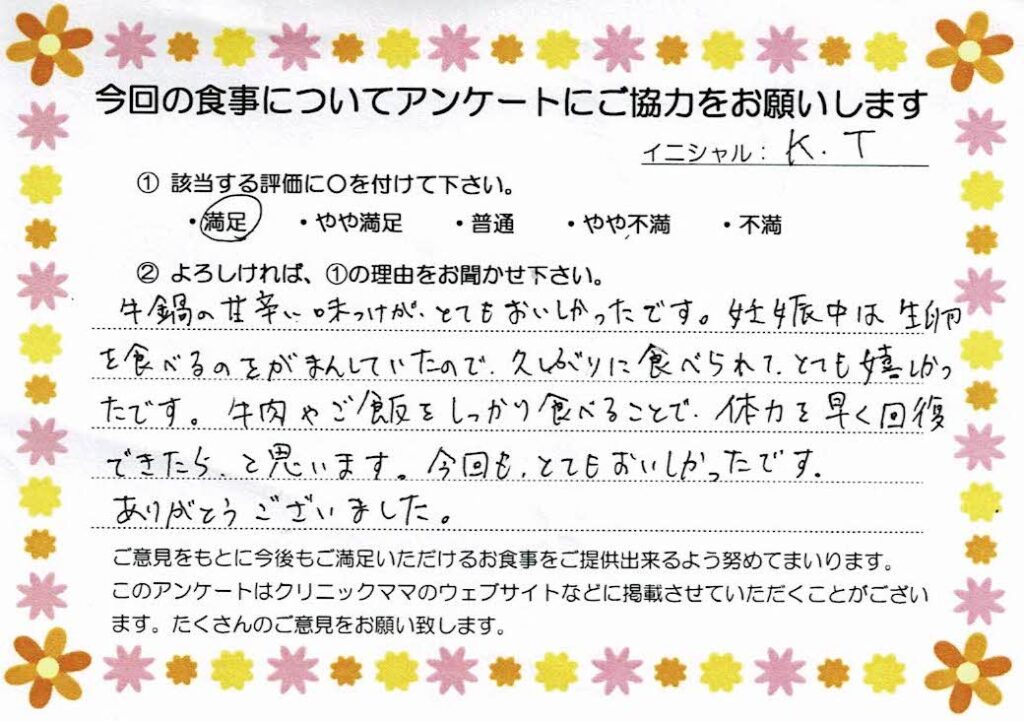 今回の食事についてアンケートにご協力をお願いします
イニシャル： K.T
① 該当する評価に〇を付けて下さい。
・満足 ・やや満足 ・普通 ・やや不満 ・不満
② よろしければ、①の理由をお聞かせ下さい。
牛鍋の甘辛い味つけが、とてもおいしかったです。妊娠中は生卵
を食べるのをがまんしていたので、久しぶりに食べられて、とても嬉しかっ
たです。牛肉やご飯をしっかり食べることで、体力を早く回復
できたら、と思います。今回も、とてもおいしかったです。
ありがとうございました。
ご意見をもとに今後もご満足いただけるお食事をご提供出来るよう努めてまいります。
このアンケートはクリニックママのウェブサイトなどに掲載させていただくことがござい
ます。たくさんのご意見をお願い致します。